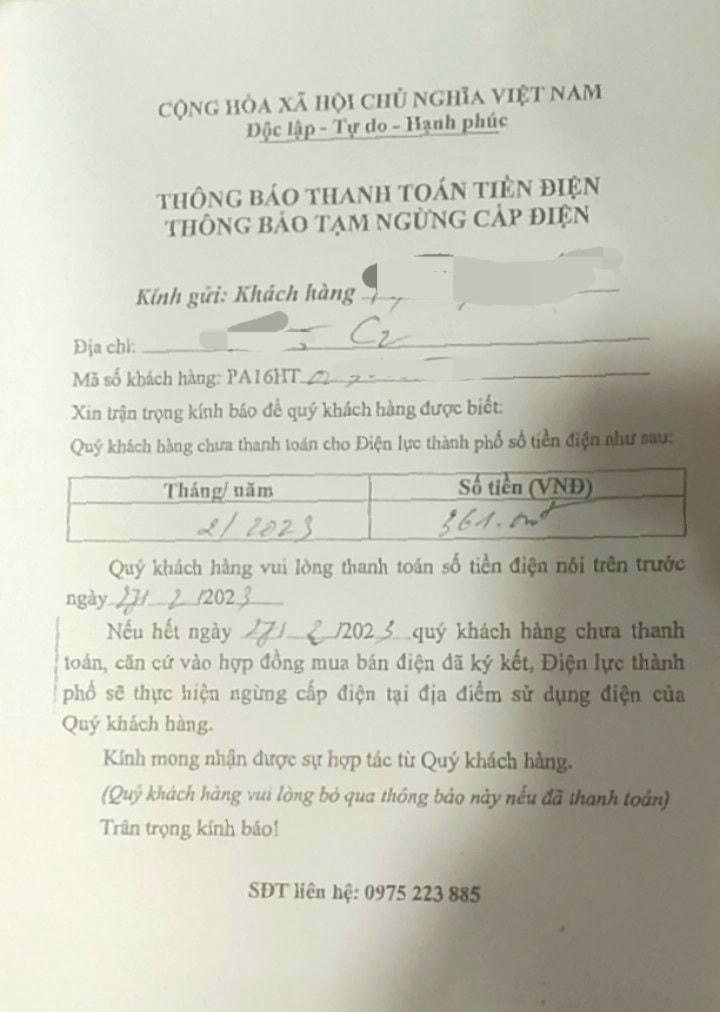 CỘNG HÒA XÃ HỘI CHỦ NGHĨA VIỆT NAM
Độc lập - Tự do - Hạnh phúc
THÔNG BÁO THANH TOÁN TIỀN ĐIỆN
THÔNG BÁO TẠM NGỪNG CẤP ĐIỆN
Kính gửi: Khách hàng
Địa chỉ: C2
Mã số khách hàng: PA16HT
Xin trận trọng kính báo để quý khách hàng được biết:
Quý khách hàng chưa thanh toán cho Điện lực thành phố số tiền điện như sau:
Tháng/ năm Số tiền (VNĐ)
2/ 2023 361.000đ
Quý khách hàng vui lòng thanh toán số tiền điện nói trên trước
ngày 27/ 2 /2023
Nếu hết ngày 27/ 2 /2023 quý khách hàng chưa thanh
toán, căn cứ vào hợp đồng mua bán điện đã ký kết, Điện lực thành
phố sẽ thực hiện ngừng cấp điện tại địa điểm sử dụng điện của
Quý khách hàng.
Kính mong nhận được sự hợp tác từ Quý khách hàng.
(Quý khách hàng vui lòng bỏ qua thông báo này nếu đã thanh toán)
Trân trọng kính báo!
SĐT liên hệ: 0975 223 885